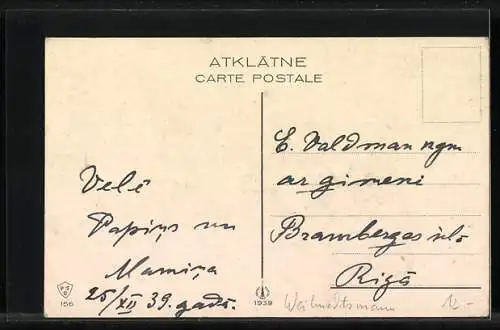 ATKLĀTNE
CARTE POSTALE
E. Valdman kgm
ar ģimeni
Brambergas ielā
Rīgā
Velē
Papiņs un
Mamiņa
25/XII 39. gadā.
156
1939
Weihnachtsmann
12-